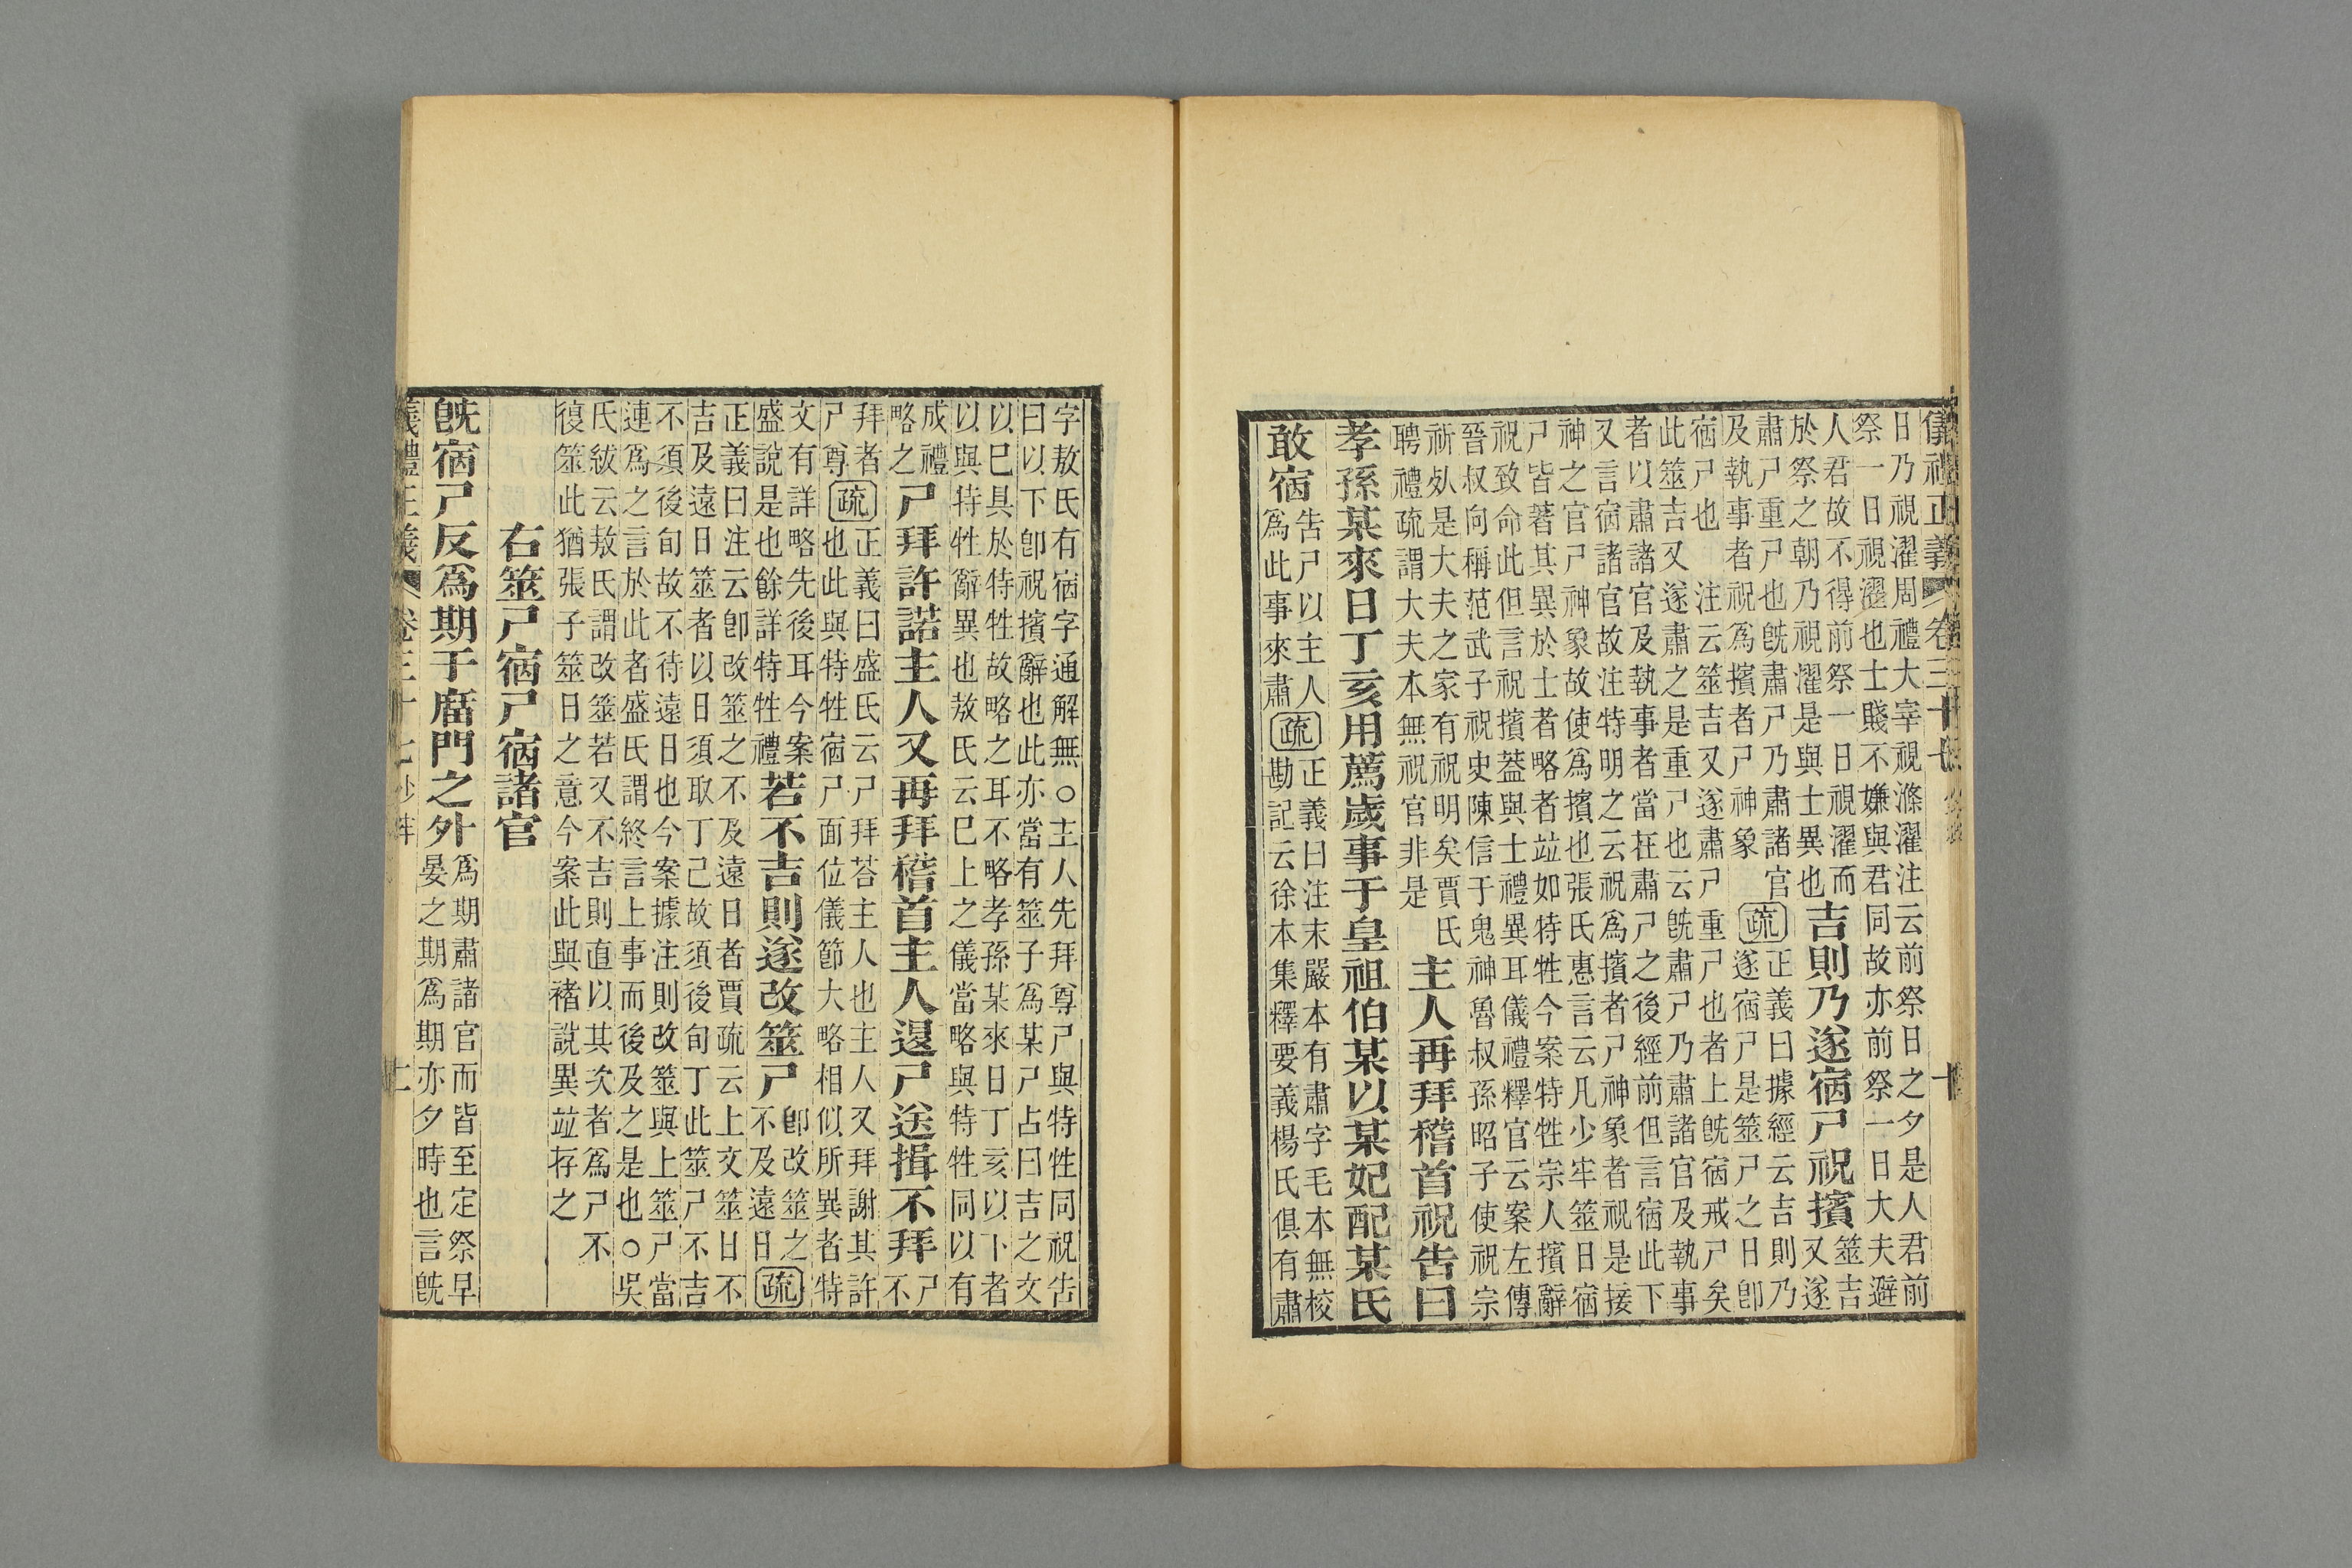 儀禮正義 卷三十七 十
日乃視濯周禮大宰視滌濯注云前祭日之夕是人君前
祭一日視濯也士賤不嫌與君同故亦前祭一日大夫避
人君故不得前祭一日視濯而
於祭之朝乃視濯是與士異也
吉則乃遂宿尸祝擯
筮吉
又遂
肅尸重尸也旣肅尸乃肅諸官
及執事者祝爲擯者尸神象
疏
正義曰據經云吉則乃
遂宿尸是筮尸之日卽
宿尸也 注云筮吉又遂肅尸重尸也者上旣宿戒尸矣
此筮吉又遂肅之是重尸也云旣肅尸乃肅諸官及執事
者以肅諸官及執事者當在肅尸之後經前但言宿此下
又言宿諸官故注特明之云祝爲擯者尸神象者祝是接
神之官尸神象故使爲擯也張氏惠言云凡少牢筮日宿
尸皆著其異於士者略者竝如特牲今案特牲宗人擯辭
祝致命此但言祝擯葢與士禮異耳儀禮釋官云案左傳
晉叔向稱范武子祝史陳信于鬼神魯叔孫昭子使祝宗
祈死是大夫之家有祝明矣賈氏
聘禮疏謂大夫本無祝官非是
主人再拜稽首祝告曰
孝孫某來日丁亥用薦歲事于皇祖伯某以某妃配某氏
敢宿
告尸以主人
爲此事來肅
疏
正義曰注末嚴本有肅字毛本無校
勘記云徐本集釋要義楊氏俱有肅
字敖氏有宿字通解無○主人先拜尊尸與特牲同祝告
曰以下卽祝擯辭也此亦當有筮子爲某尸占曰吉之文
以巳具於特牲故略之耳不略孝孫某來日丁亥以下者
以與特牲辭異也敖氏云巳上之儀當略與特牲同以有
成禮
略之
尸拜許諾主人又再拜稽首主人退尸送揖不拜
尸
不
拜者
尸尊
疏
正義曰盛氏云尸拜荅主人也主人又拜謝其許
也此與特牲宿尸面位儀節大略相似所異者特
文有詳略先後耳今案
盛說是也餘詳特牲禮
若不吉則遂改筮尸
卽改筮之
不及遠日
疏
正義曰注云卽改筮之不及遠日者賈疏云上文筮日不
吉及遠日筮者以日須取丁己故須後旬丁此筮尸不吉
不須後旬故不待遠日也今案據注則改筮與上筮尸當
連爲之言於此者盛氏謂終言上事而後及之是也○吳
氏紱云敖氏謂改筮若又不吉則直以其次者爲尸不
復筮此猶張子筮日之意今案此與褚說異竝存之
右筮尸宿尸宿諸官
旣宿尸反爲期于廟門之外
爲期肅諸官而皆至定祭早
晏之期爲期亦夕時也言旣